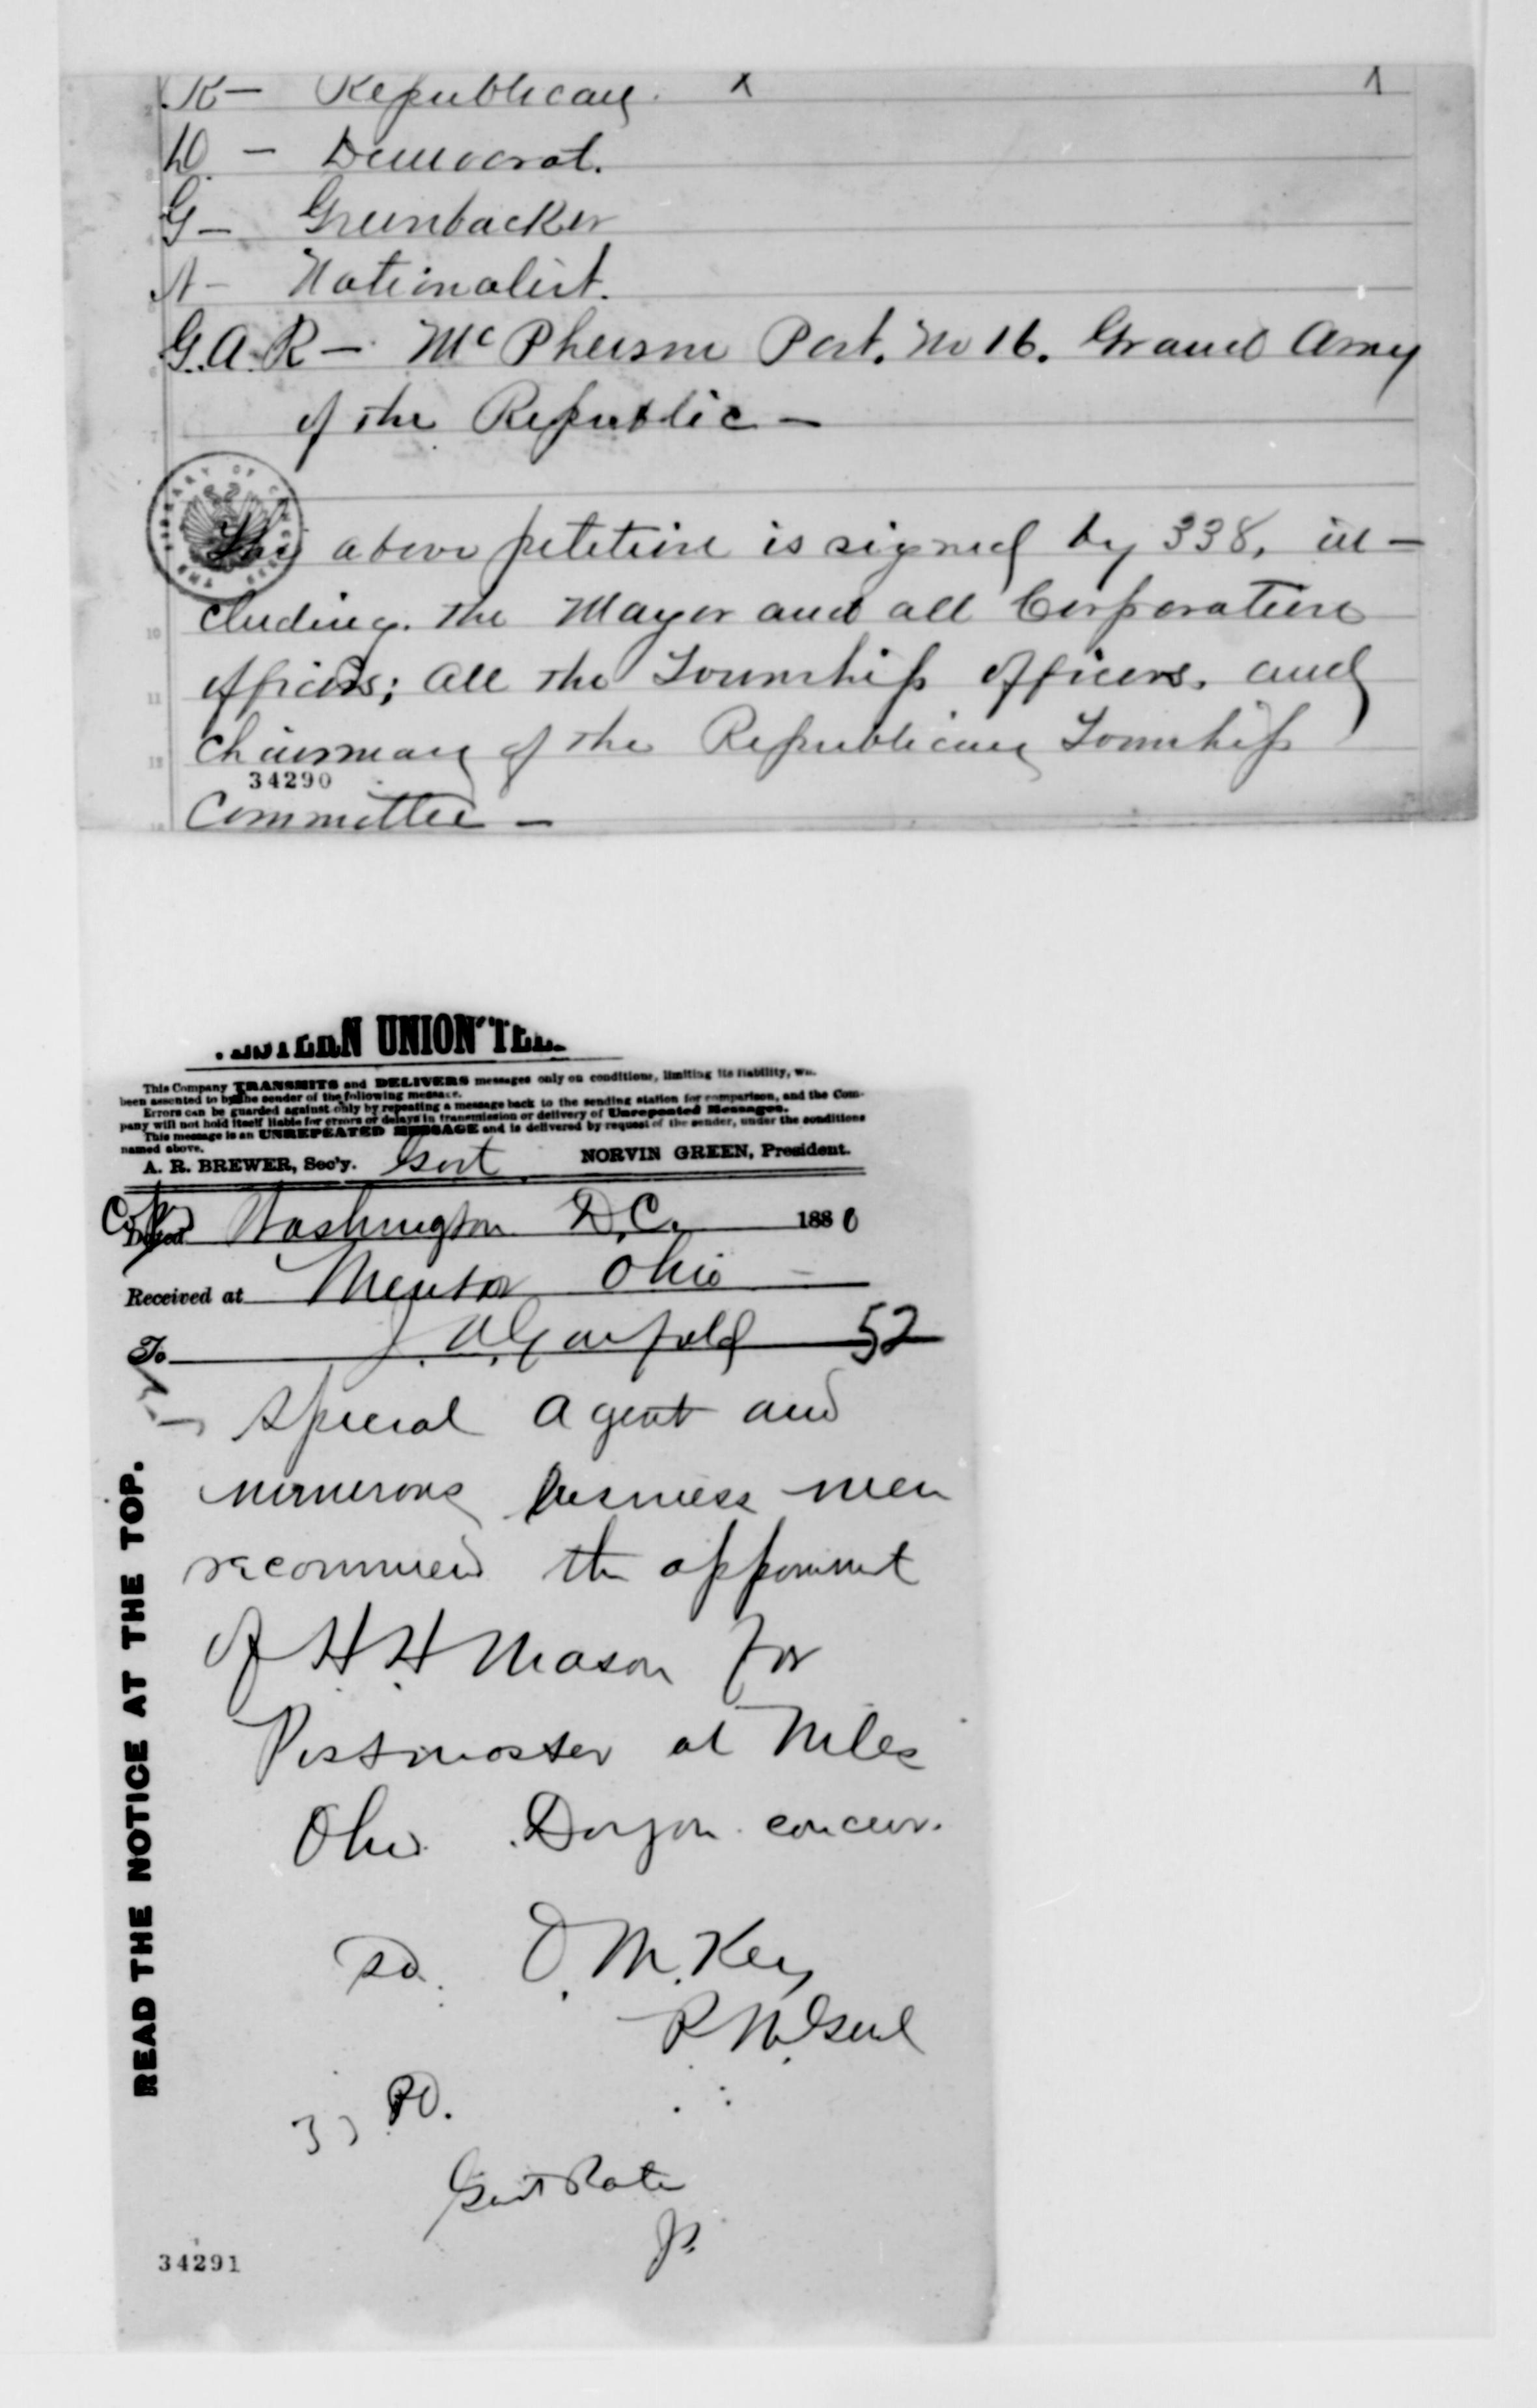 R — Republican. x
D. — Democrat.
G — Greenbacker
N — Nationalist.
G.A.R — McPherson Post. No 16. Grand Army
of the Republic —
THE LIBRARY OF CONGRESS
The above petition is signed by 338, in-
cluding. the Mayor and all Corporation
officers; all the Township officers, and
Chairman of the Republican Township
34290
Committee —
WESTERN UNION TEL
This Company TRANSMITS and DELIVERS messages only on conditions, limiting its liability, wh
been assented to by the sender of the following message.
Errors can be guarded against only by repeating a message back to the sending station for comparison, and the Com-
pany will not hold itself liable for errors or delays in transmission or delivery of Unrepeated Messages.
This message is an UNREPEATED MESSAGE and is delivered by request of the sender, under the conditions
named above.
A. R. BREWER, Sec'y. Govt NORVIN GREEN, President.
Copy
Dated Washington D.C. 1880
Received at Mentor Ohio —
To J. A. Garfield 52
Special Agent and
numerous business men
recommend the appointment
of H. H. Mason for
Postmaster at Niles
Ohio concur.
sd. D. M. Key
P M Genl
33 PD.
Govt Rate
READ THE NOTICE AT THE TOP.
34291